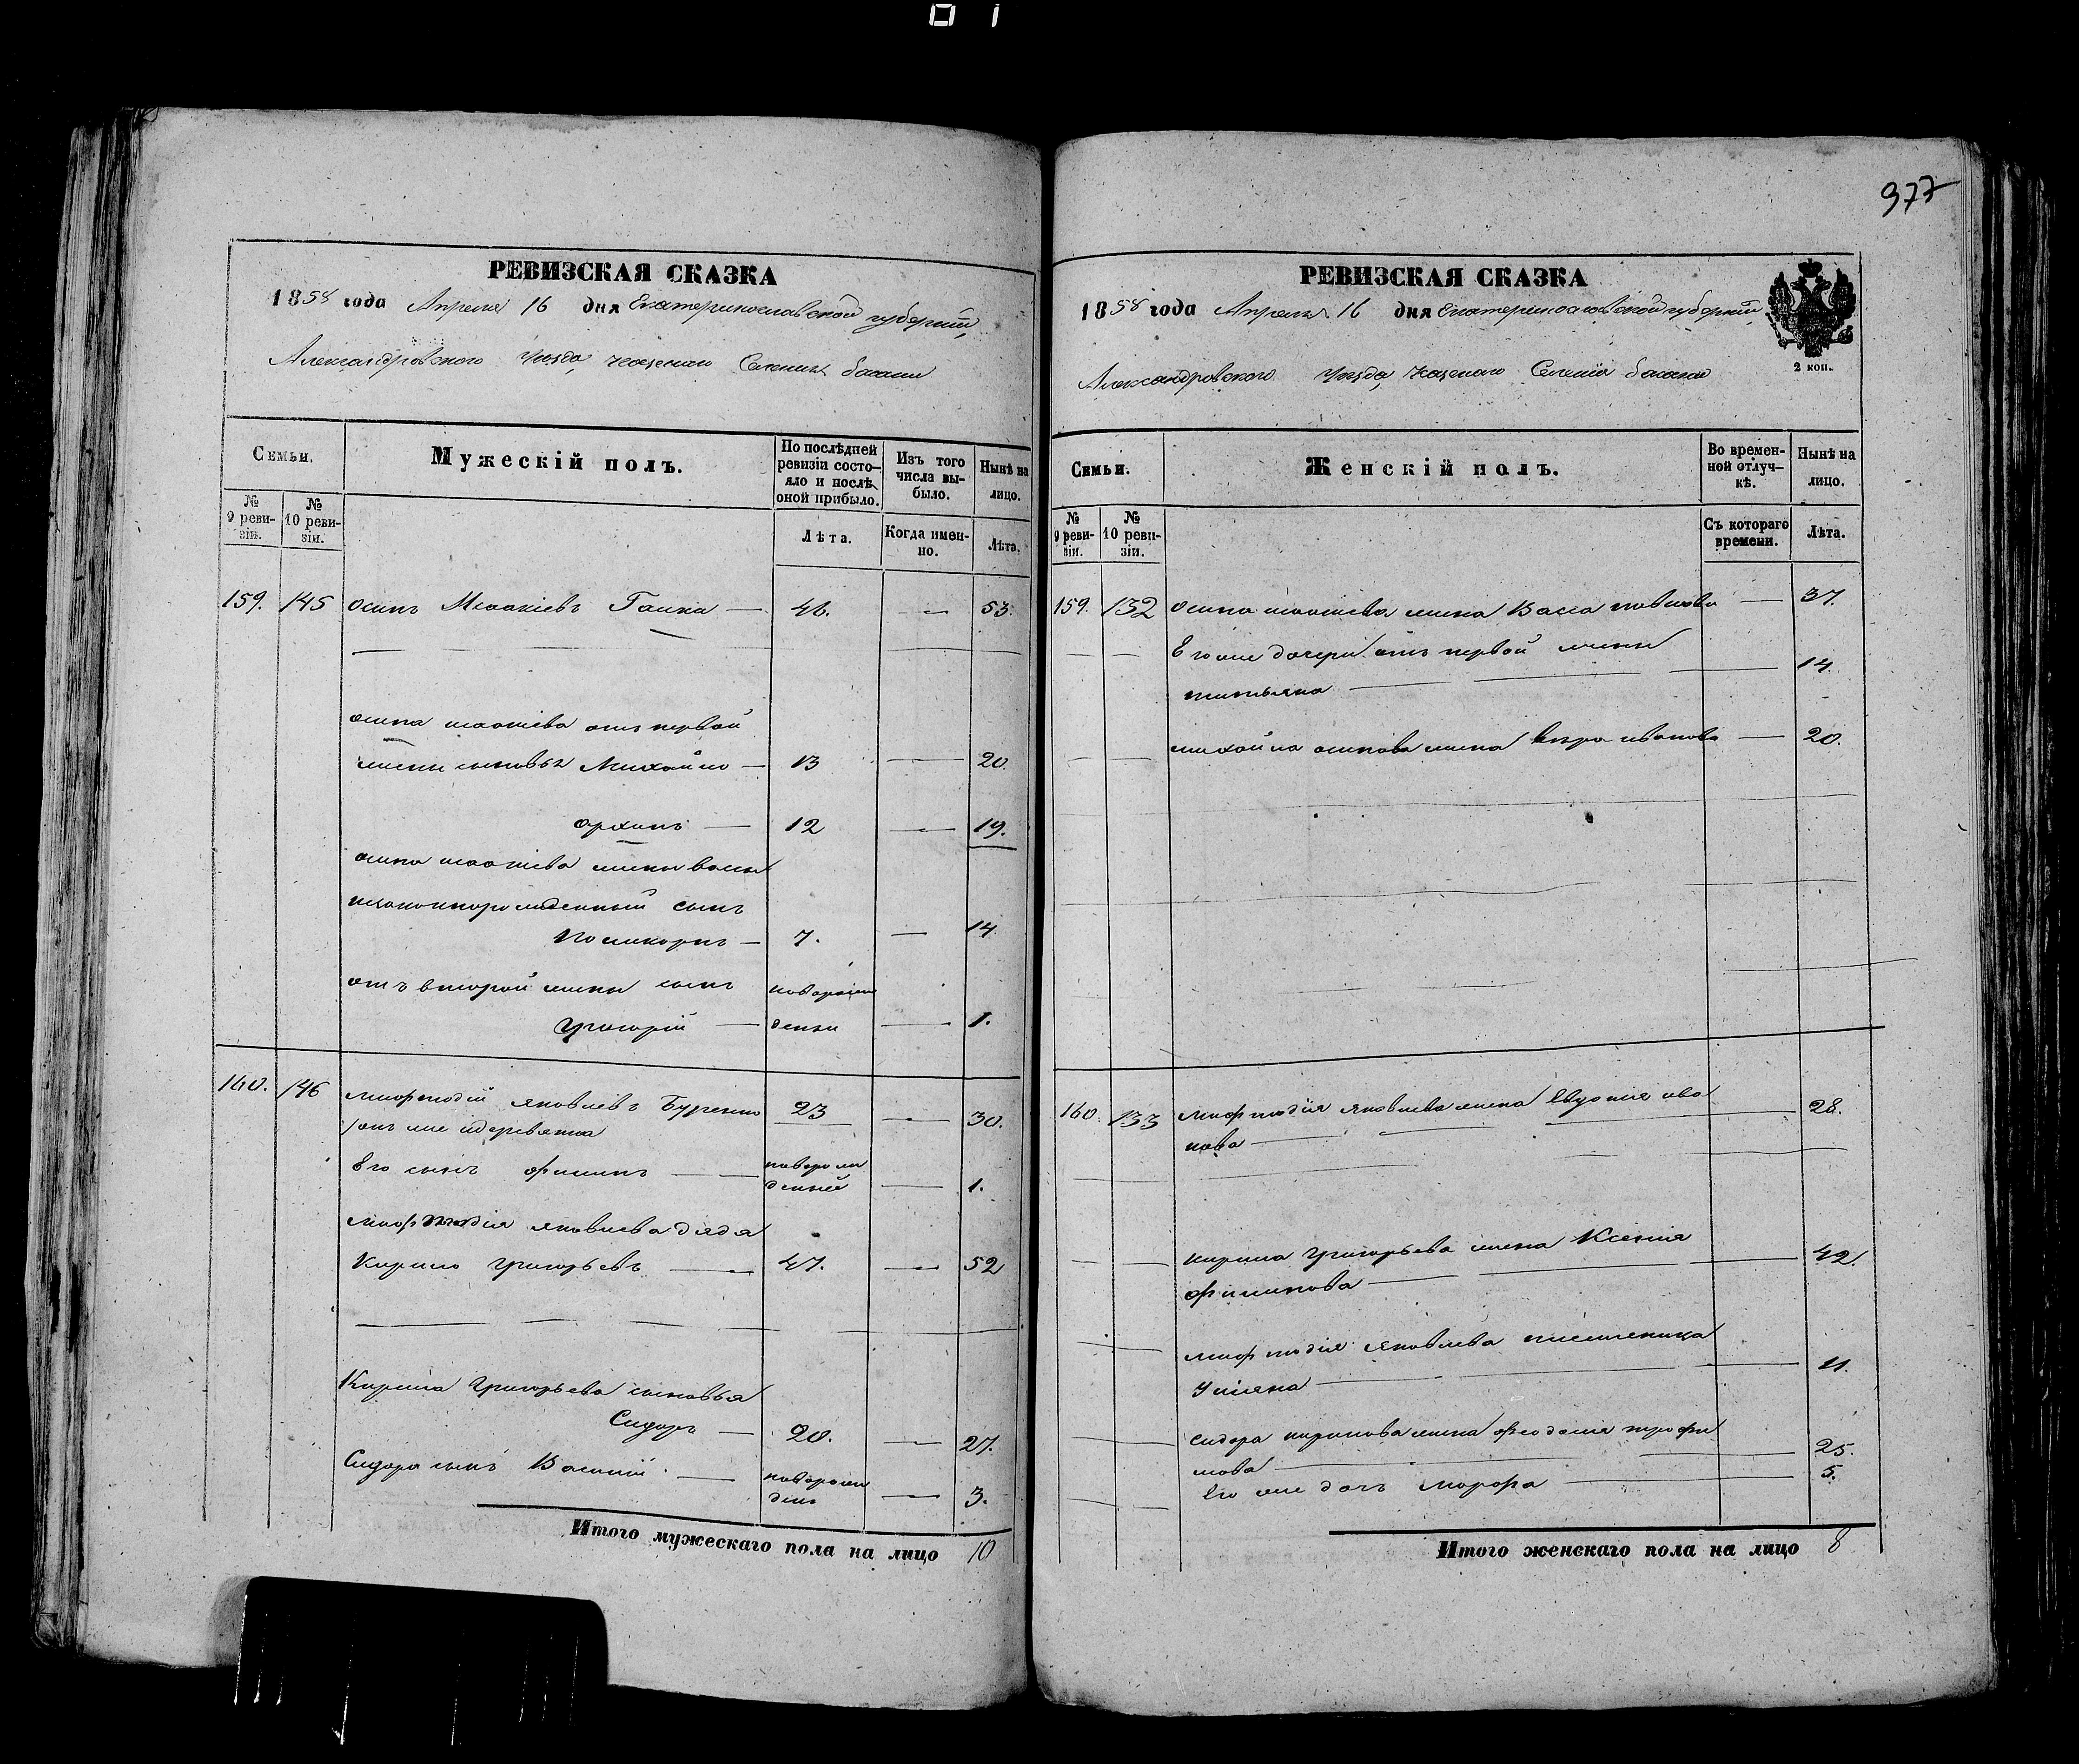 977
РЕВИЗСКАЯ СКАЗКА
1858 года Апреля 16 дня Екатеринославской губернии,
Александровского уезда, казенного Селения
Семьи.
Мужескій полъ.
По послѣдней ревизіи состо-яло и послѣ оной прибыло.
Изъ того числа вы-было.
Нынѣ на лицо.
№ 9 реви-зіи.
№ 10 реви-зіи.
Лѣта.
Когда имен-но.
Лѣта.
159. 145 Осипъ Галка — 46. — 53.
осипа от первой
жены сыновья Михайло — 13 — 20.
архипъ — 12 — 19.
осипа жены васы
сынъ
Поликарпъ — 7. — 14
отъ второй жены сынъ новорож
Григорій — денны — 1.
160. 146 Мефтодій яковлевъ Буренко 23 — 30.
онъ же
Его сынъ филипъ — новорож
денный — 1.
Мефтодія яковлева дядя
Кирило Григорьевъ — 47. — 52
Кирила Григорьева сыновья
Сидоръ — 20. — 27.
Сидора сынъ Василій — новорож
денъ — 3.
Итого мужескаго пола на лицо 10
РЕВИЗСКАЯ СКАЗКА
1858 года Апреля 16 дня Екатеринославской губернии,
Александровского уезда, казеного Селенія
2 коп.
Семьи.
Женскій полъ.
Во времен-ной отлуч-кѣ.
Нынѣ на лицо.
№ 9 реви-зіи.
№ 10 реви-зіи.
Съ котораго времени.
Лѣта.
159. 132 Осипа жена Васа павлова — 37.
Его же дочери отъ первой жены
татьяна — 14.
михайла осипова жена вера иванова — 20.
160. 133 Мефтодія яковлева жена Евдокія ива
нова — 28.
кирила Григорьева жена Ксенія
филипова — 42.
Мефтодія яковлева племеница
Уліяна — 11.
Сидора кирилова жена феодосія трофи
мова — 25.
Его же дочь марфа — 5.
Итого женскаго пола на лицо 8